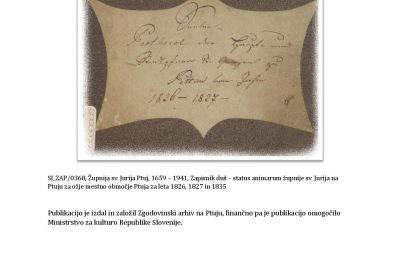 Seelen
Protocol der Haupt und
Stadtpfarr St. Georgen zu
Pettau vom Jahre
1826 – 1827 –
SI_ZAP/0368, Župnija sv. Jurija Ptuj, 1659 – 1941, Zapisnik duš – status animarum župnije sv. Jurija na
Ptuju za ožje mestno območje Ptuja za leta 1826, 1827 in 1835
Publikacijo je izdal in založil Zgodovinski arhiv na Ptuju, finančno pa je publikacijo omogočilo
Ministrstvo za kulturo Republike Slovenije.